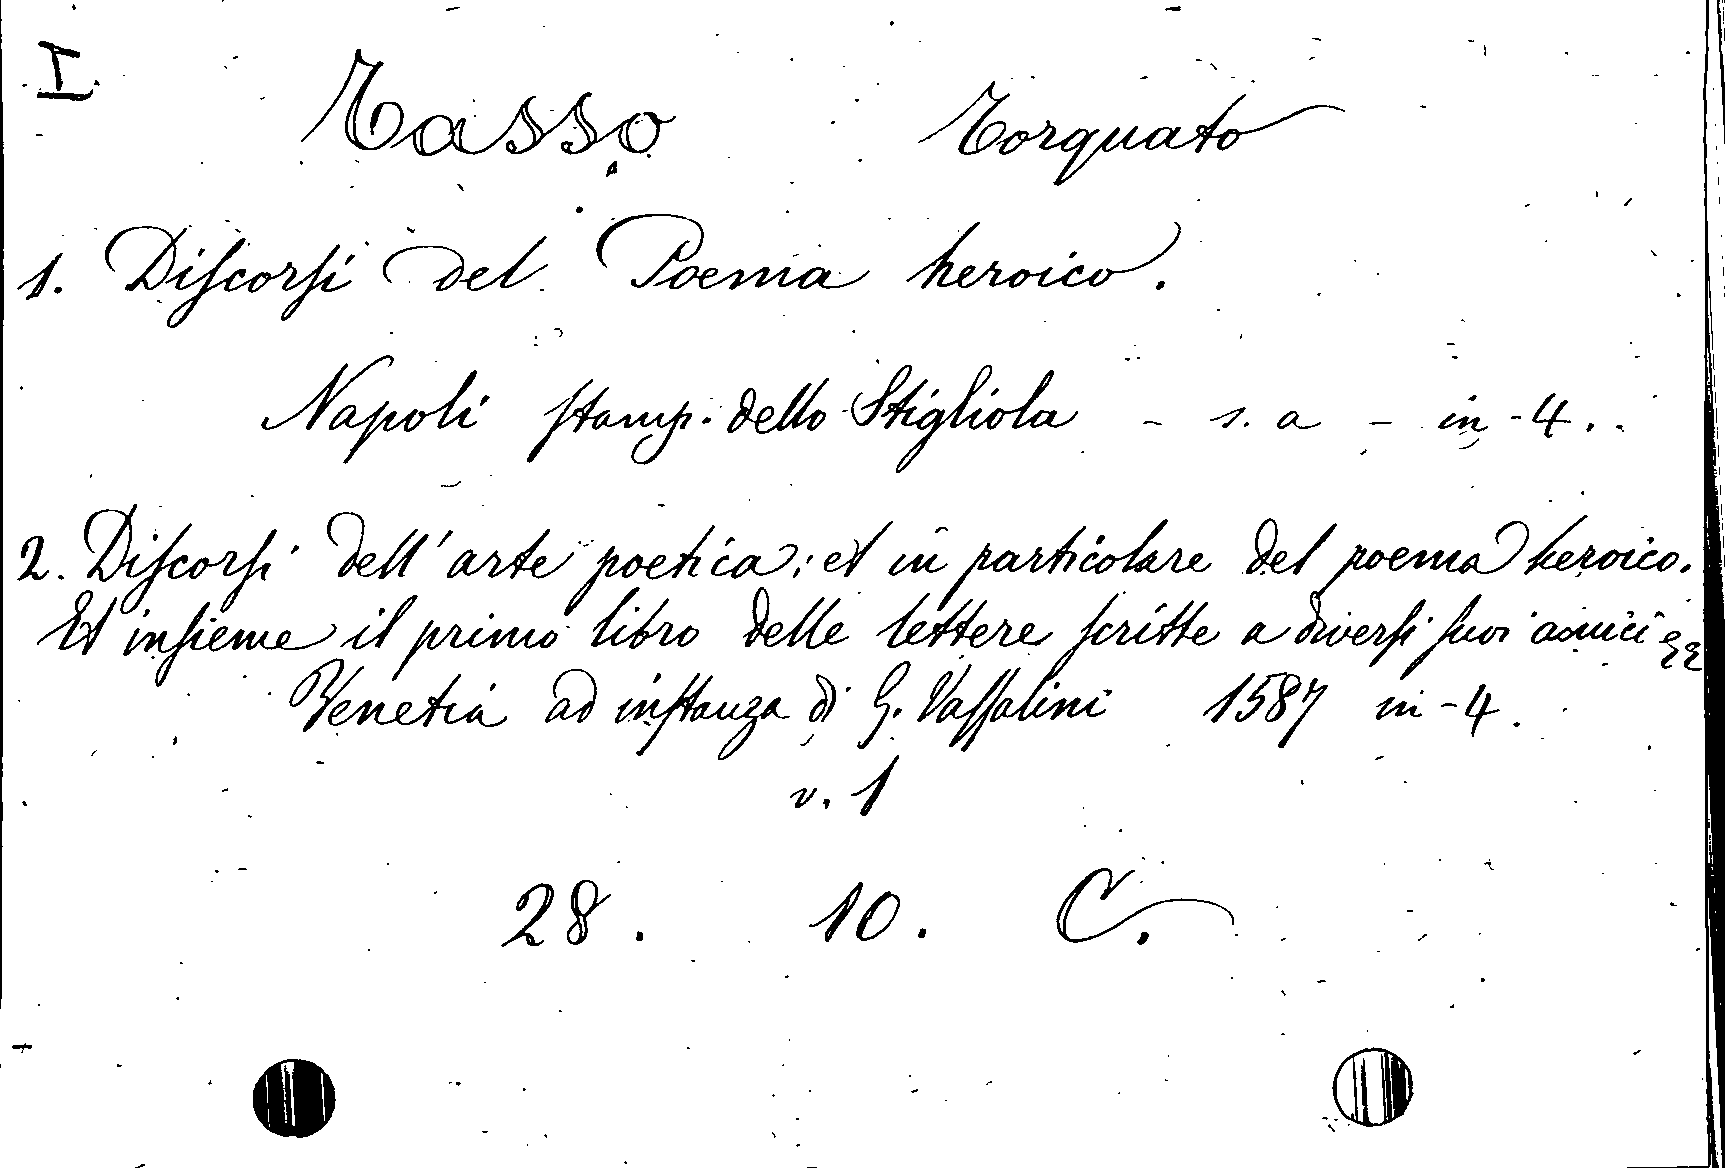 I
Tasso Torquato
1. Diſcorſi del Poema heroico.
Napoli ſtamp. dello Stigliola - s. a - in-4.
2. Diſcorſi dell'arte poetica; et in particolare del poema heroico.
Et inſieme il primo libro delle lettere ſcritte a diverſi ſuoi amici
Venetia ad inſtanza di G. Vaſſalini 1587 in-4.
v. 1
28. 10. C.